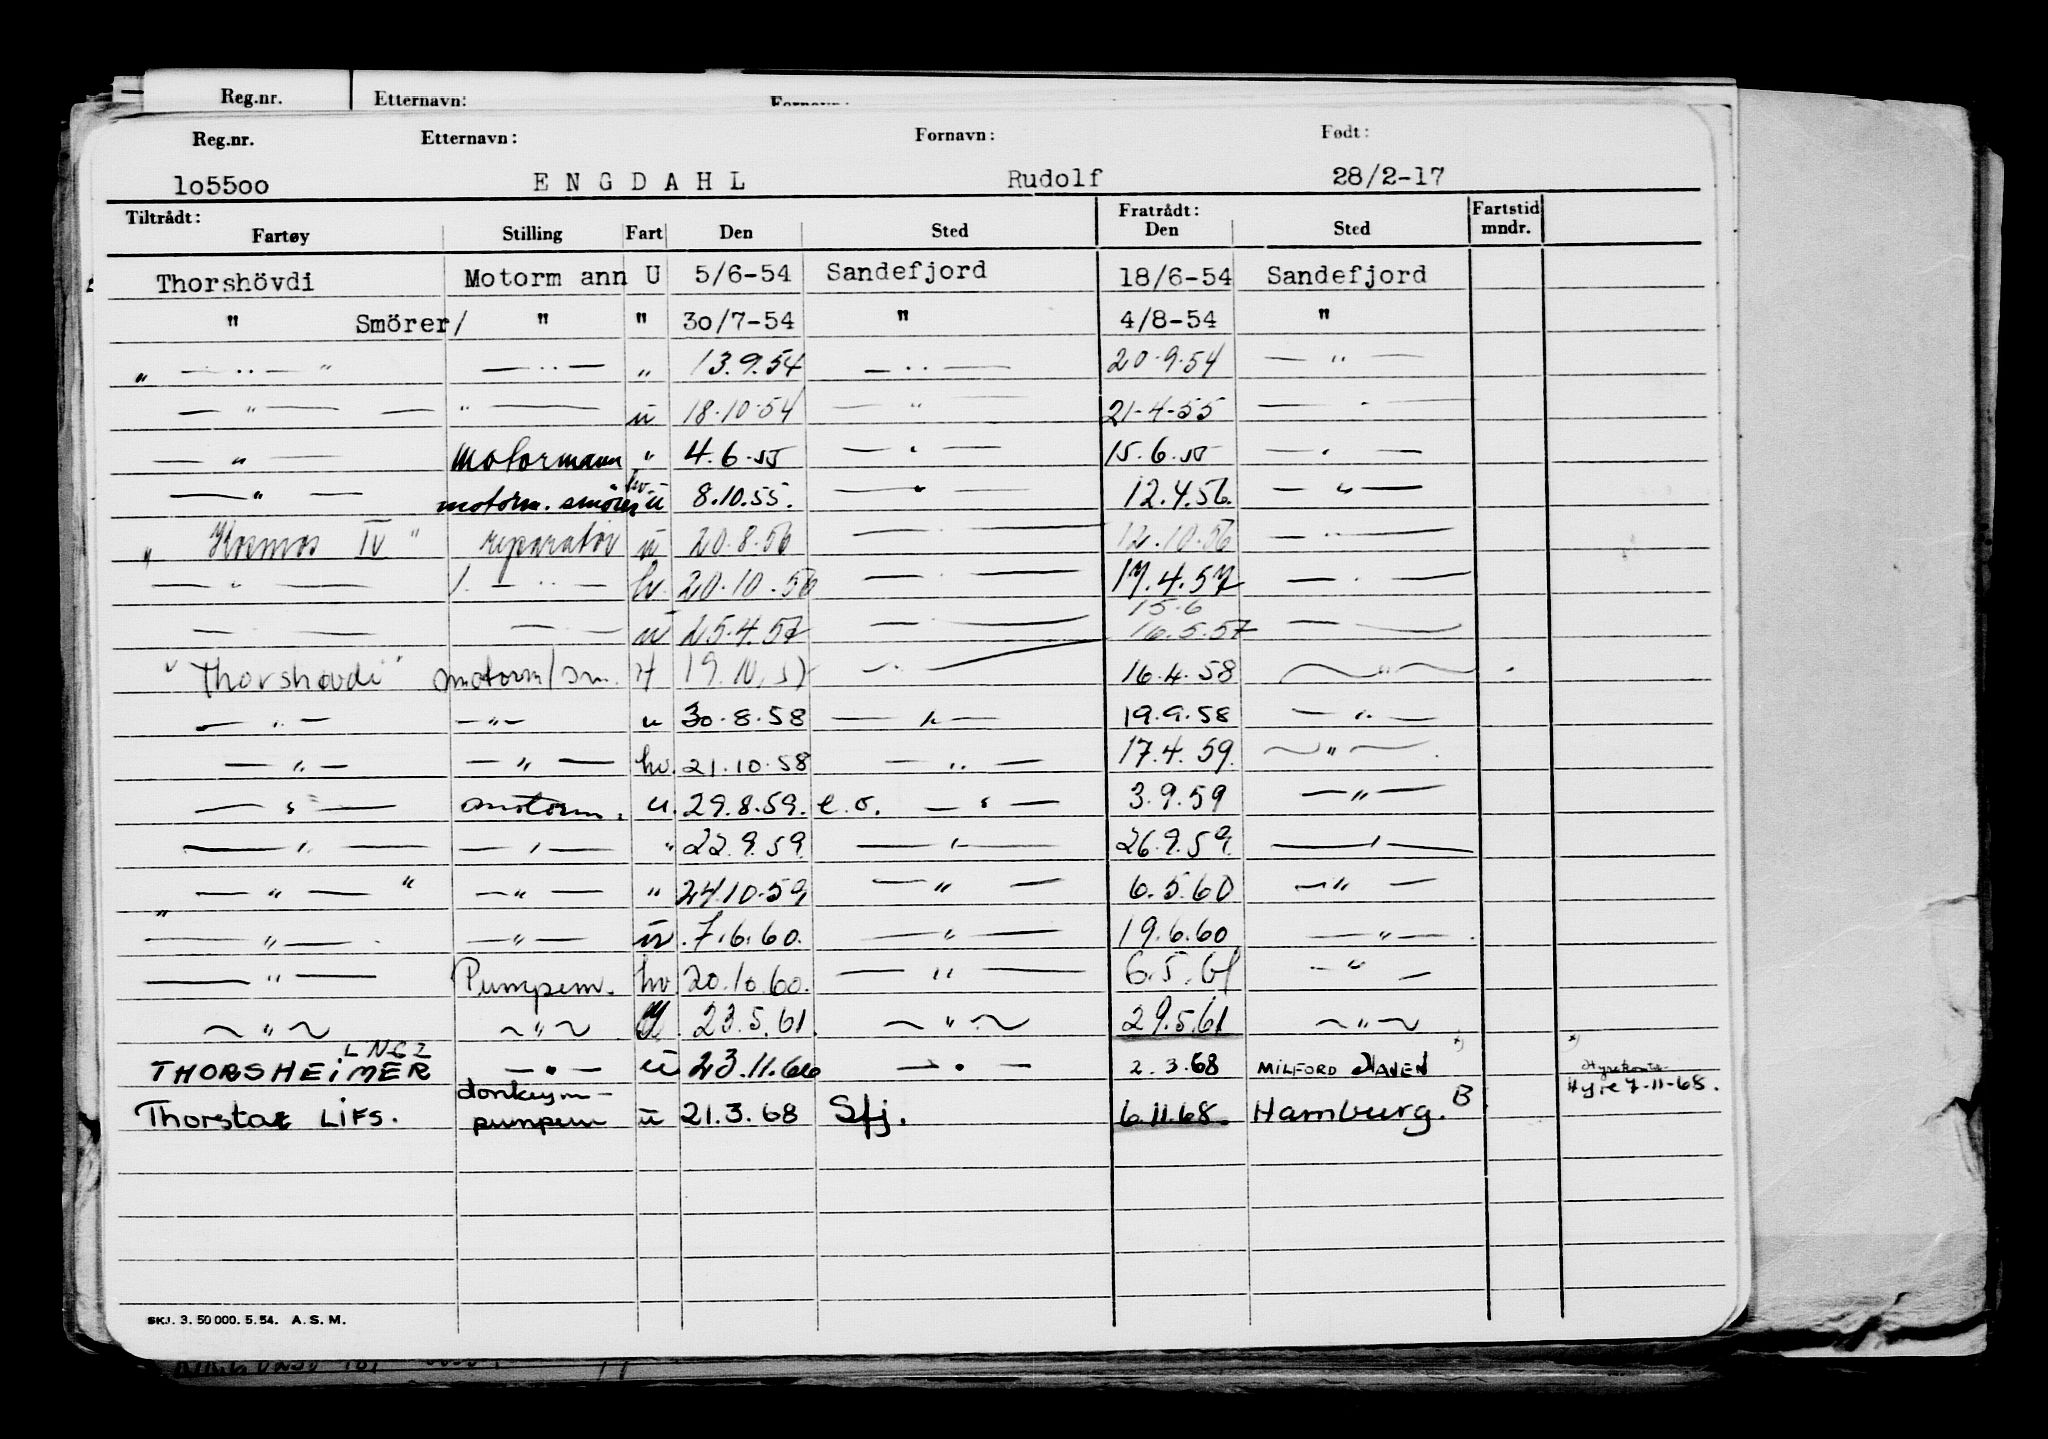 Reg.nr. Etternavn: Fornavn:
Reg.nr. Etternavn: Fornavn: Født:
1o55oo ENGDAHL Rudolf 28/2-17
Tiltrådt: Fratrådt: Fartstid
Fartøy Stilling Fart Den Sted Den Sted mndr.
Thorshövdi Motorm ann U 5/6-54 Sandefjord 18/6-54 Sandefjord
" Smörer/ " " 3o/7-54 " 4/8-54 "
" — " — " — " — " 13.9.54 — " — 20.9.54 — " —
— " — — " — ü 18.10.54 — " — 21-4-55 — " —
— " — Motormann " 4.6.55 — " — 15.6.55 — " —
— " — motorm. smörer hv ü 8.10.55. — " — 12.4.56. — " —
" Kosmos IV " reparatör ü 20.8.56 — " — 12.10.56 — " —
— " — 1. — " — hv. 20.10.56 — " — 17.4.57 — " —
15.6
— " — — " — ü 25.4.57 — " — 16.5.57 — " —
" Thorshövdi " motorm/sm. H 19.10.57 — " — 16.4.58 — " —
— " — — " — u 30.8.58 — " — 19.9.58 — " —
— " — — " — hv. 21.10.58 — " — 17.4.59. — " —
— " — motorm. u. 29.8.59. e.o. — " — 3.9.59 — " —
— " — — " — " 22.9.59. — " — 26.9.59. — " —
" — " — " — " — " 24.10.59 — " — 6.5.60 — " —
— " — — " — ü 7.6.60. — " — 19.6.60 — " —
— " — Pumpem. hv 20.10.60. — " — 6.5.61 — " —
— " — — " — U. 23.5.61. — " — 29.5.61 — " —
LNGZ
THORSHEIMER — " — ü 23.11.66 — " — 2.3.68 MILFORD HAVEN *) *)
Thorstar LIFS. donkeym- pumpem ü 21.3.68 Sfj. 6.11.68. Hamburg. B. Hyre 7-11-68.
SKJ. 3. 50 000. 5. 54. A. S. M.